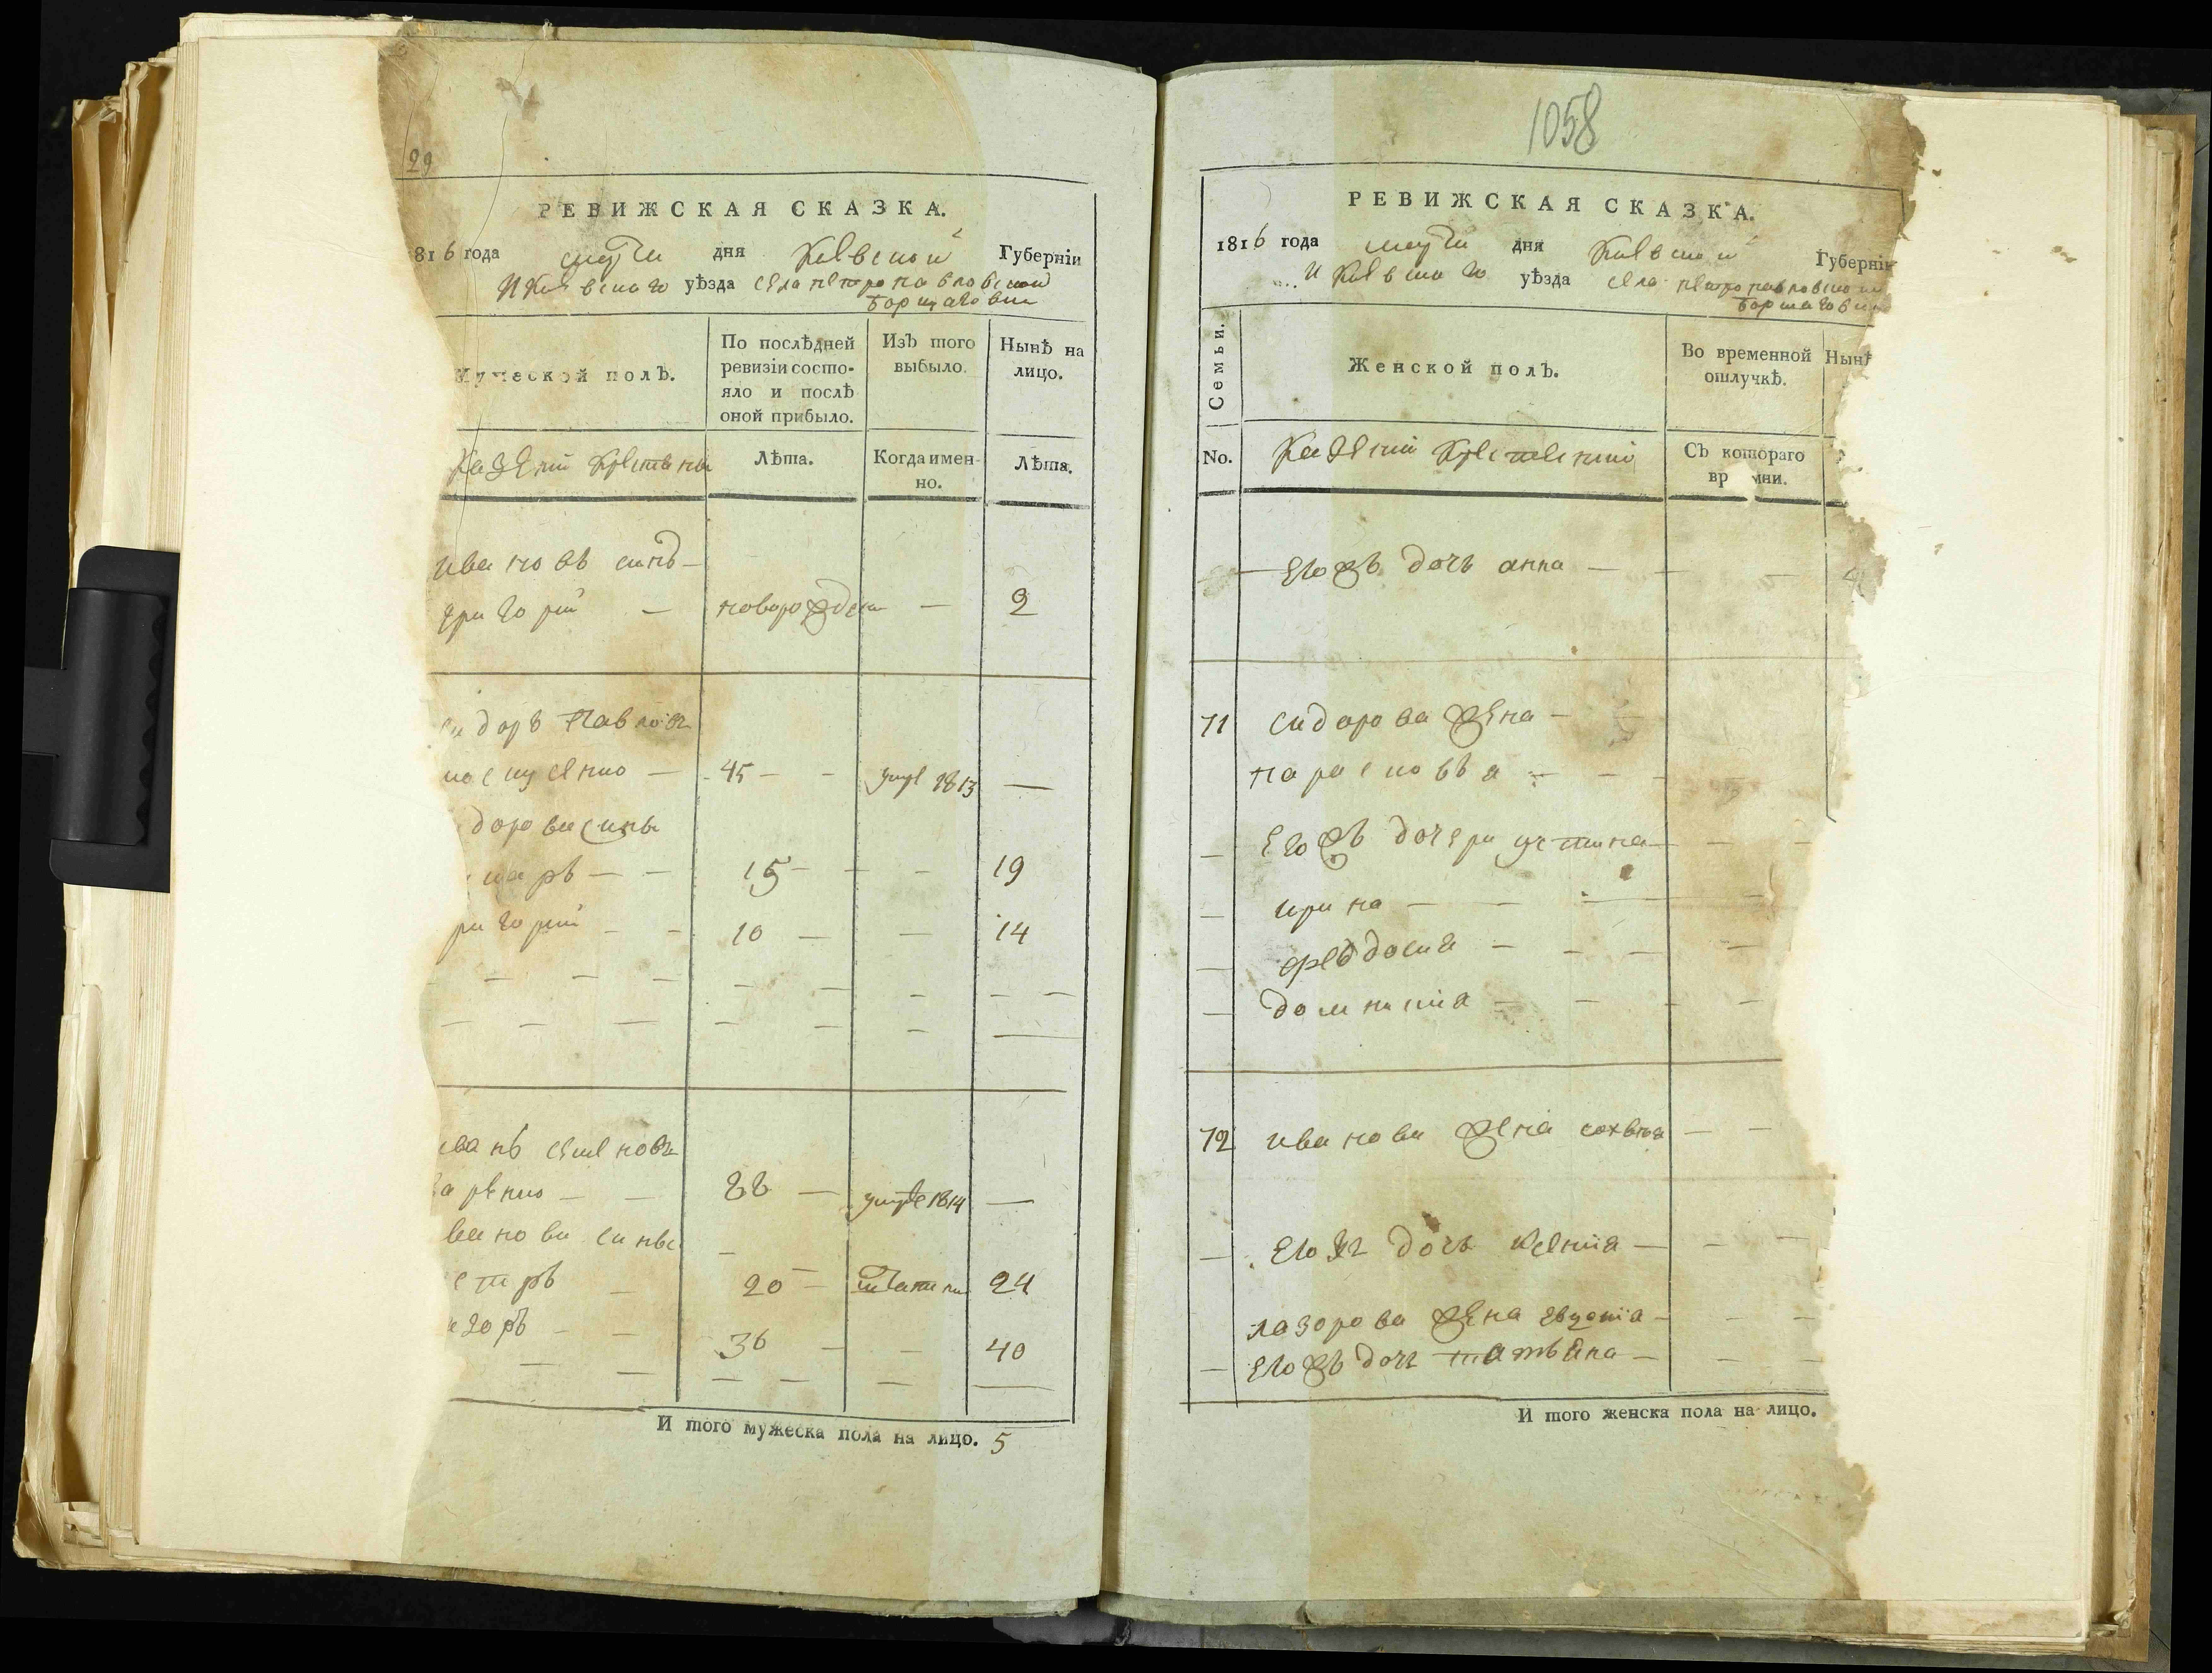 29
РЕВИЖСКАЯ СКАЗКА.
1816 года марта дня Киевской Губерніи
И Киевскаго уѣзда села петропавловской
Борщаговки
Мужеской полъ.
По послѣдней
ревизіи состо-
яло и послѣ
оной прибыло.
Изъ того
выбыло.
Нынѣ на
лицо.
Казенніи Крестьяны
Лѣта.
Когда имен-
но.
Лѣта.
ивановъ синъ
григорій новорожден 2
сидоръ Павловъ
45 умре 1813
доровы сины
15 19
григорій 10 14
иванъ
умре 1814
вановы сины
петръ 20 24
36 40
И того мужеска пола на лицо. 5
1058
РЕВИЖСКАЯ СКАЗКА.
1816 года марта дня Киевской Губерніи
И Киевскаго уѣзда села петропавловской
Борщаговки
Семьи.
Женской полъ.
Во временной
отлучкѣ.
Нынѣ
No.
Казенніи Крестьянки
Съ котораго
вр мни.
Егожъ дочь анна
71 сидорова жена
парасковѣя
Егожъ дочери устина
ирина
феодосия
домникия
72 иванова жена софия
Егожъ дочь ксения
лазорова жена евдокия
Егожъ дочь татьяна
И того женска пола на лицо.